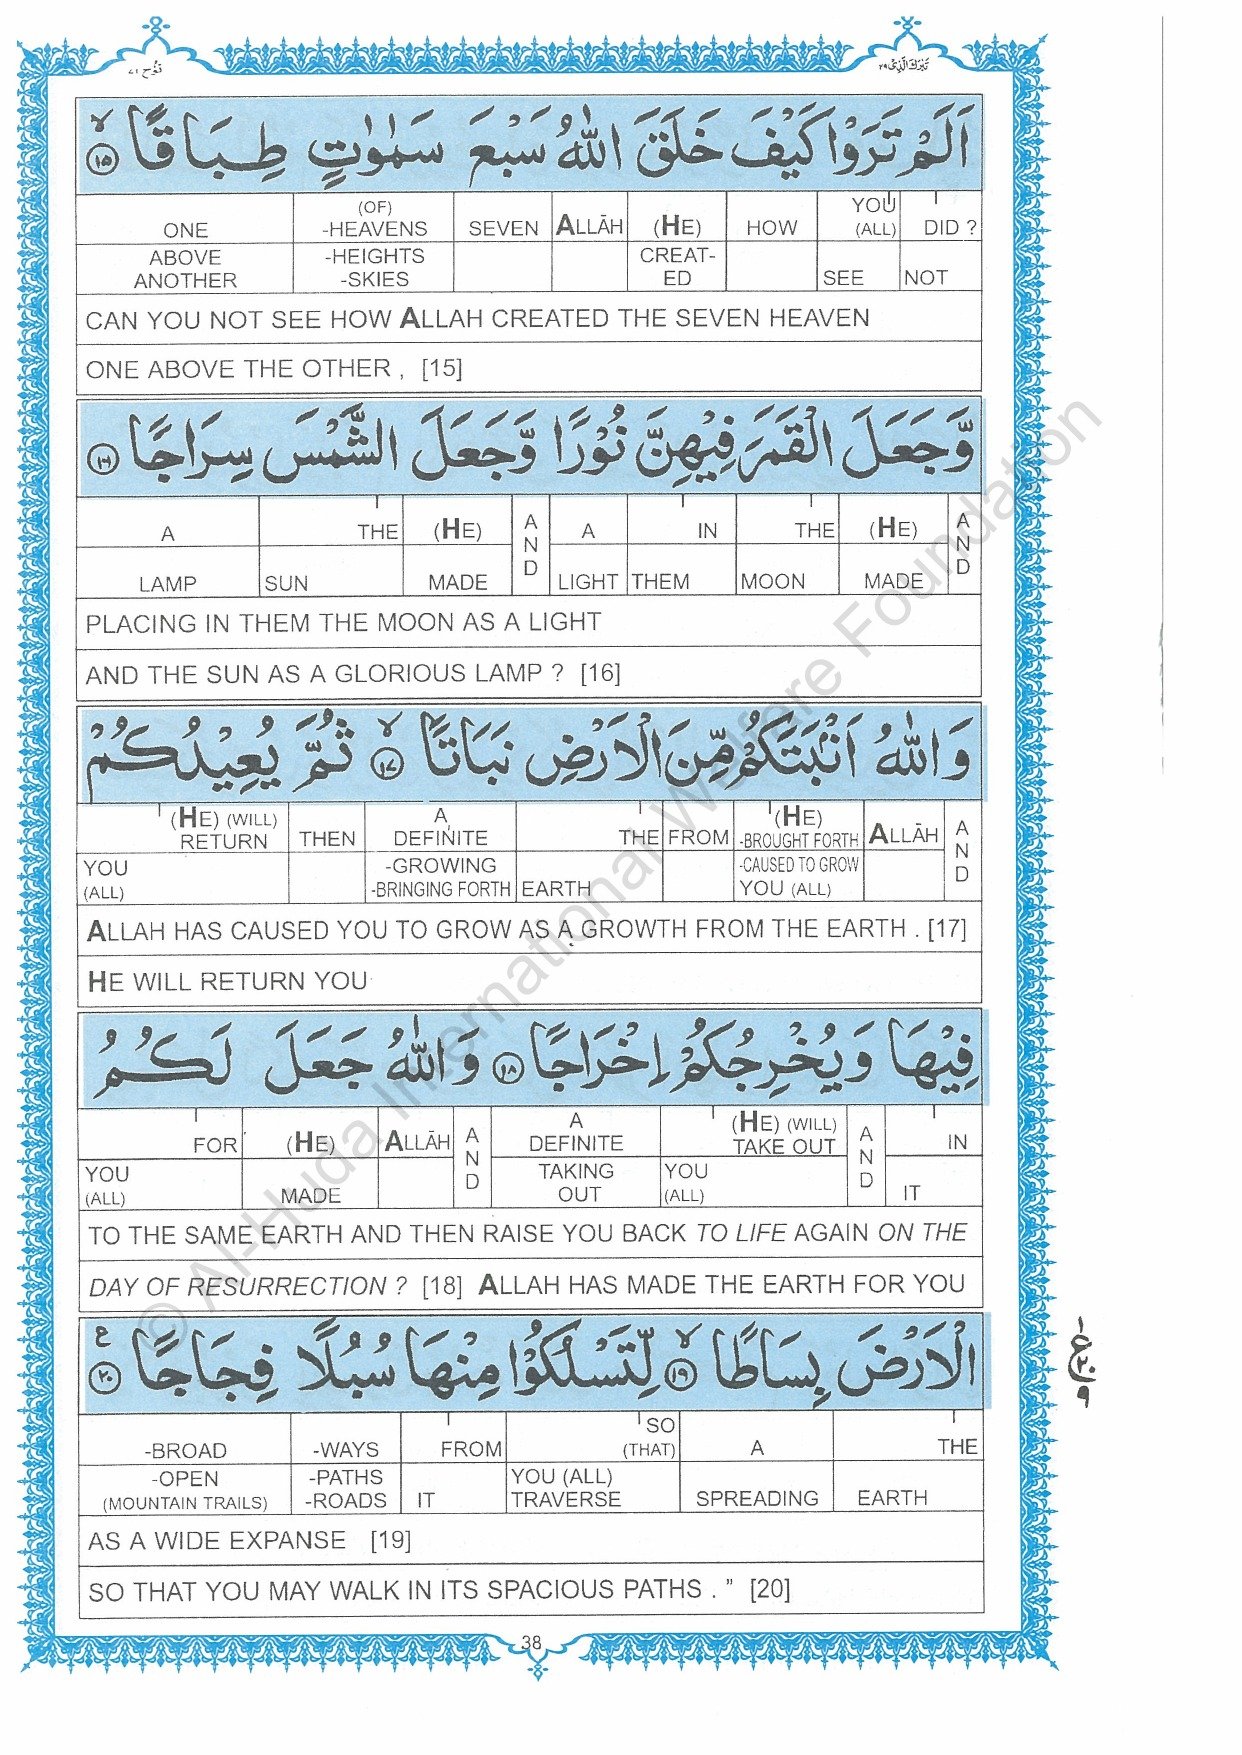 تَبٰرَكَ الَّذِیْ ٢٩
نُوْح ٧١
اَلَمْ تَرَوْا كَيْفَ خَلَقَ اللّٰهُ سَبْعَ سَمٰوٰتٍ طِبَاقًا ۙ ﴿١٥﴾
ONE (OF) -HEAVENS SEVEN ALLĀH (HE) HOW YOU (ALL) DID ?
ABOVE ANOTHER -HEIGHTS -SKIES CREAT-ED SEE NOT
CAN YOU NOT SEE HOW ALLAH CREATED THE SEVEN HEAVEN
ONE ABOVE THE OTHER , [15]
وَّجَعَلَ الْقَمَرَ فِيْهِنَّ نُوْرًا وَّجَعَلَ الشَّمْسَ سِرَاجًا ﴿١٦﴾
A THE (HE) AND A IN THE (HE) AND
LAMP SUN MADE LIGHT THEM MOON MADE
PLACING IN THEM THE MOON AS A LIGHT
AND THE SUN AS A GLORIOUS LAMP ? [16]
وَاللّٰهُ اَنْۢبَتَكُمْ مِّنَ الْاَرْضِ نَبَاتًا ۙ ﴿١٧﴾ ثُمَّ يُعِيْدُكُمْ
(HE) (WILL) RETURN THEN A DEFINITE THE FROM (HE) -BROUGHT FORTH ALLĀH AND
YOU (ALL) -GROWING -BRINGING FORTH EARTH -CAUSED TO GROW YOU (ALL)
ALLAH HAS CAUSED YOU TO GROW AS A GROWTH FROM THE EARTH . [17]
HE WILL RETURN YOU
فِيْهَا وَيُخْرِجُكُمْ اِخْرَاجًا ﴿١٨﴾ وَاللّٰهُ جَعَلَ لَكُمُ
FOR (HE) ALLĀH AND A DEFINITE (HE) (WILL) TAKE OUT AND IN
YOU (ALL) MADE TAKING OUT YOU (ALL) IT
TO THE SAME EARTH AND THEN RAISE YOU BACK TO LIFE AGAIN ON THE
DAY OF RESURRECTION ? [18] ALLAH HAS MADE THE EARTH FOR YOU
الْاَرْضَ بِسَاطًا ۙ ﴿١٩﴾ لِّتَسْلُكُوْا مِنْهَا سُبُلًا فِجَاجًا ﴿٢٠﴾ ع
-BROAD -WAYS FROM SO (THAT) A THE
-OPEN (MOUNTAIN TRAILS) -PATHS -ROADS IT YOU (ALL) TRAVERSE SPREADING EARTH
AS A WIDE EXPANSE [19]
SO THAT YOU MAY WALK IN ITS SPACIOUS PATHS . ” [20]
١
ع ٢٠
٩
38
© Al-Huda International Welfare Foundation